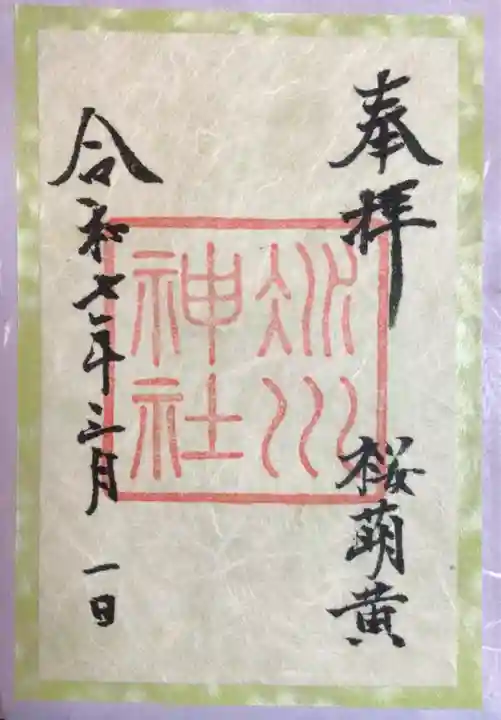 奉拝
桜萌黄
氷川
神社
令和七年三月
一日